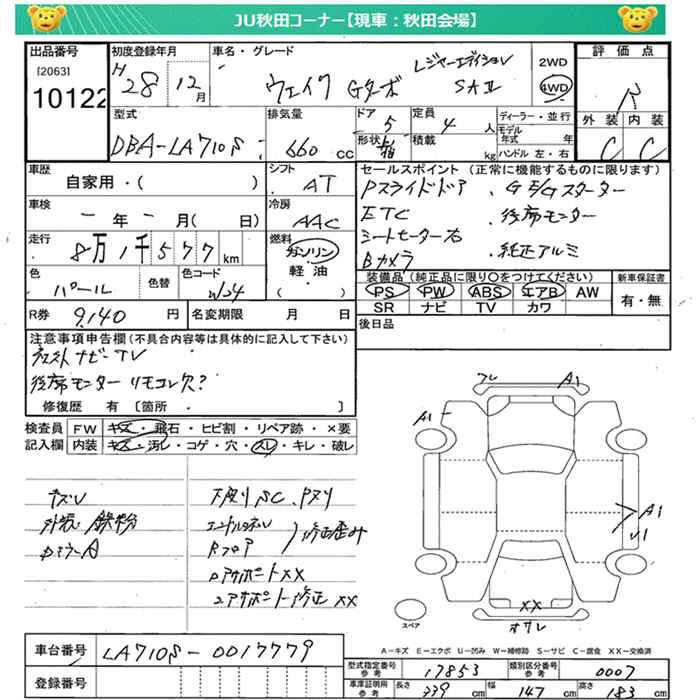 JU秋田コーナー【現車：秋田会場】
出品番号
[2063]
10122
初度登録年月
H28 12月
車名・グレード
ウェイク Gターボ レジャーエディション SAⅡ
2WD
4WD
評価点
R
外装 内装
C C
型式
DBA-LA710S
排気量
660 cc
ドア 5
形状
定員 4 人
積載 kg
ディーラー・並行
モデル年式 年
ハンドル 左・右
車歴
自家用・( )
シフト
AT
車検
一年一月( 日)
冷房
AAC
走行
8万1千577km
燃料
ガソリン
軽油
( )
色
パール
色替
色コード
W24
R券 9,140 円
名変期限 月 日
セールスポイント (正常に機能するものに限ります)
Pスライドドア . Gモノスターター
ETC . 後席モニター
シートヒーター右 . 純正アルミ
Bカメラ
装備品 (純正品に限り○をつけてください)
PS PW ABS エアB AW
SR ナビ TV カワ
新車保証書
有・無
後日品
注意事項申告欄 (不具合内容等は具体的に記入して下さい)
社外ナビーTV
後席モニター リモコン欠?
修復歴 有 〔箇所 . 〕
検査員記入欄
FW キズ・飛石・ヒビ割・リペア跡・×要
内装 キズ・汚レ・コゲ・穴・スレ・キレ・破レ
キズU
外装 鉄粉
下廻りSC、Pヌリ
エンドパネル
Rフロア
修正歪み
ロアサポートXX
コアサポート修正XX
フレ
A1
A1
A1
U1
XX
オサレ
スペア
A−キズ E−エクボ U−凹み W−補修跡 S−サビ C−腐食 XX−交換済
車台番号
LA710S-0017779
登録番号
型式指定番号 参考
17853
類別区分番号 参考
0007
車庫証明用 参考
長さ 339 cm
幅 147 cm
高さ 183 cm